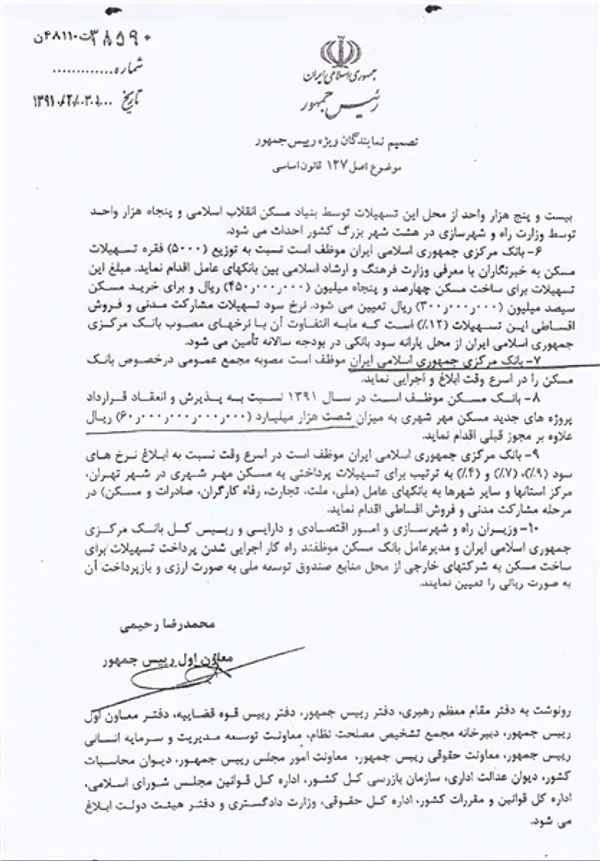 ۳۸۵۹۰ت۴۸۱۱۰ن
شماره.............
تاریخ ۱۳۹۱/۰۲/۰۳
جمهوری اسلامی ایران
رئیس جمهور
تصمیم نمایندگان ویژه رییس جمهور
موضوع اصل ۱۲۷ قانون اساسی
بیست و پنج هزار واحد از محل این تسهیلات توسط بنیاد مسکن انقلاب اسلامی و پنجاه هزار واحد
توسط وزارت راه و شهرسازی در هشت شهر بزرگ کشور احداث می شود.
۶- بانک مرکزی جمهوری اسلامی ایران موظف است نسبت به توزیع (۵۰۰۰) فقره تسهیلات
مسکن به خبرنگاران با معرفی وزارت فرهنگ و ارشاد اسلامی بین بانکهای عامل اقدام نماید. مبلغ این
تسهیلات برای ساخت مسکن چهارصد و پنجاه میلیون (۴۵۰٫۰۰۰٫۰۰۰) ریال و برای خرید مسکن
سیصد میلیون (۳۰۰٫۰۰۰٫۰۰۰) ریال تعیین می شود. نرخ سود تسهیلات مشارکت مدنی و فروش
اقساطی این تسهیلات (۱۲٪) است که مابه التفاوت آن با نرخهای مصوب بانک مرکزی
جمهوری اسلامی ایران از محل یارانه سود بانکی در بودجه سالانه تأمین می شود.
۷- بانک مرکزی جمهوری اسلامی ایران موظف است مصوبه مجمع عمومی درخصوص بانک
مسکن را در اسرع وقت ابلاغ و اجرایی نماید.
۸- بانک مسکن موظف است در سال ۱۳۹۱ نسبت به پذیرش و انعقاد قرارداد
پروژه های جدید مسکن مهر شهری به میزان شصت هزار میلیارد (۶۰٫۰۰۰٫۰۰۰٫۰۰۰٫۰۰۰) ریال
علاوه بر مجوز قبلی اقدام نماید.
۹- بانک مرکزی جمهوری اسلامی ایران موظف است در اسرع وقت نسبت به ابلاغ نرخ های
سود (۹٪)، (۷٪) و (۴٪) به ترتیب برای تسهیلات پرداختی به مسکن مهر شهری در شهر تهران،
مرکز استانها و سایر شهرها به بانکهای عامل (ملی، ملت، تجارت، رفاه کارگران، صادرات و مسکن) در
مرحله مشارکت مدنی و فروش اقساطی اقدام نماید.
۱۰- وزیران راه و شهرسازی و امور اقتصادی و دارایی و رییس کل بانک مرکزی
جمهوری اسلامی ایران و مدیرعامل بانک مسکن موظفند راه کار اجرایی شدن پرداخت تسهیلات برای
ساخت مسکن به شرکتهای خارجی از محل منابع صندوق توسعه ملی به صورت ارزی و بازپرداخت آن
به صورت ریالی را تعیین نمایند.
محمدرضا رحیمی
معاون اول رییس جمهور
رونوشت به دفتر مقام معظم رهبری، دفتر رییس جمهور، دفتر رییس قوه قضاییه، دفتر معاون اول
رییس جمهور، دبیرخانه مجمع تشخیص مصلحت نظام، معاونت توسعه مدیریت و سرمایه انسانی
رییس جمهور، معاونت حقوقی رییس جمهور، معاونت امور مجلس رییس جمهور، دیوان محاسبات
کشور، دیوان عدالت اداری، سازمان بازرسی کل کشور، اداره کل قوانین مجلس شورای اسلامی،
اداره کل قوانین و مقررات کشور، اداره کل حقوقی، وزارت دادگستری و دفتر هیئت دولت ابلاغ
می شود.